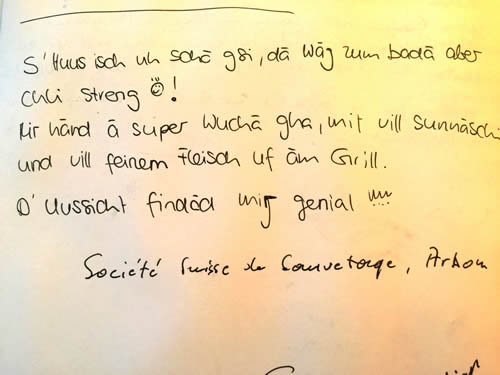 S'Huus isch uh schö gsi, dä Wäg zum badä aber
chli streng!
Mir händ ä super Wuchä gha, mit vill Sunnäschi
und vill feinem Fleisch uf äm Grill.
D'Aussicht findäd mir genial !!!!
Société Suisse de Sauvetage, Arbon